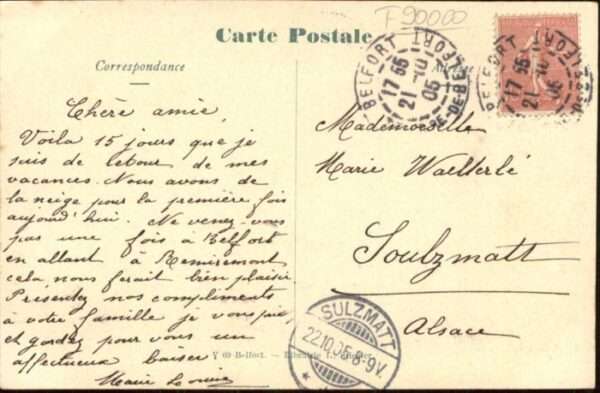 Carte Postale
F 90000
Correspondance
Chère amie,
Voila 15 jours que je
suis de retour de mes
vacances. Nous avons de
la neige pour la première fois
aujourd'hui. Ne venez-vous
pas une fois à Belfort
en allant à Remiremont
cela nous ferait bien plaisir
Présentez nos compliments
à votre famille je vous prie,
et gardez pour vous un
affectueux baiser
Marie
BELFORT
17 55
21 10
05
BELFORT
17 55
21 10
05
Mademoiselle
Marie Waelterlé
Soulzmatt
Alsace
SULZMATT
22.10.05.8-9V.
Y 69 Belfort. — Librairie